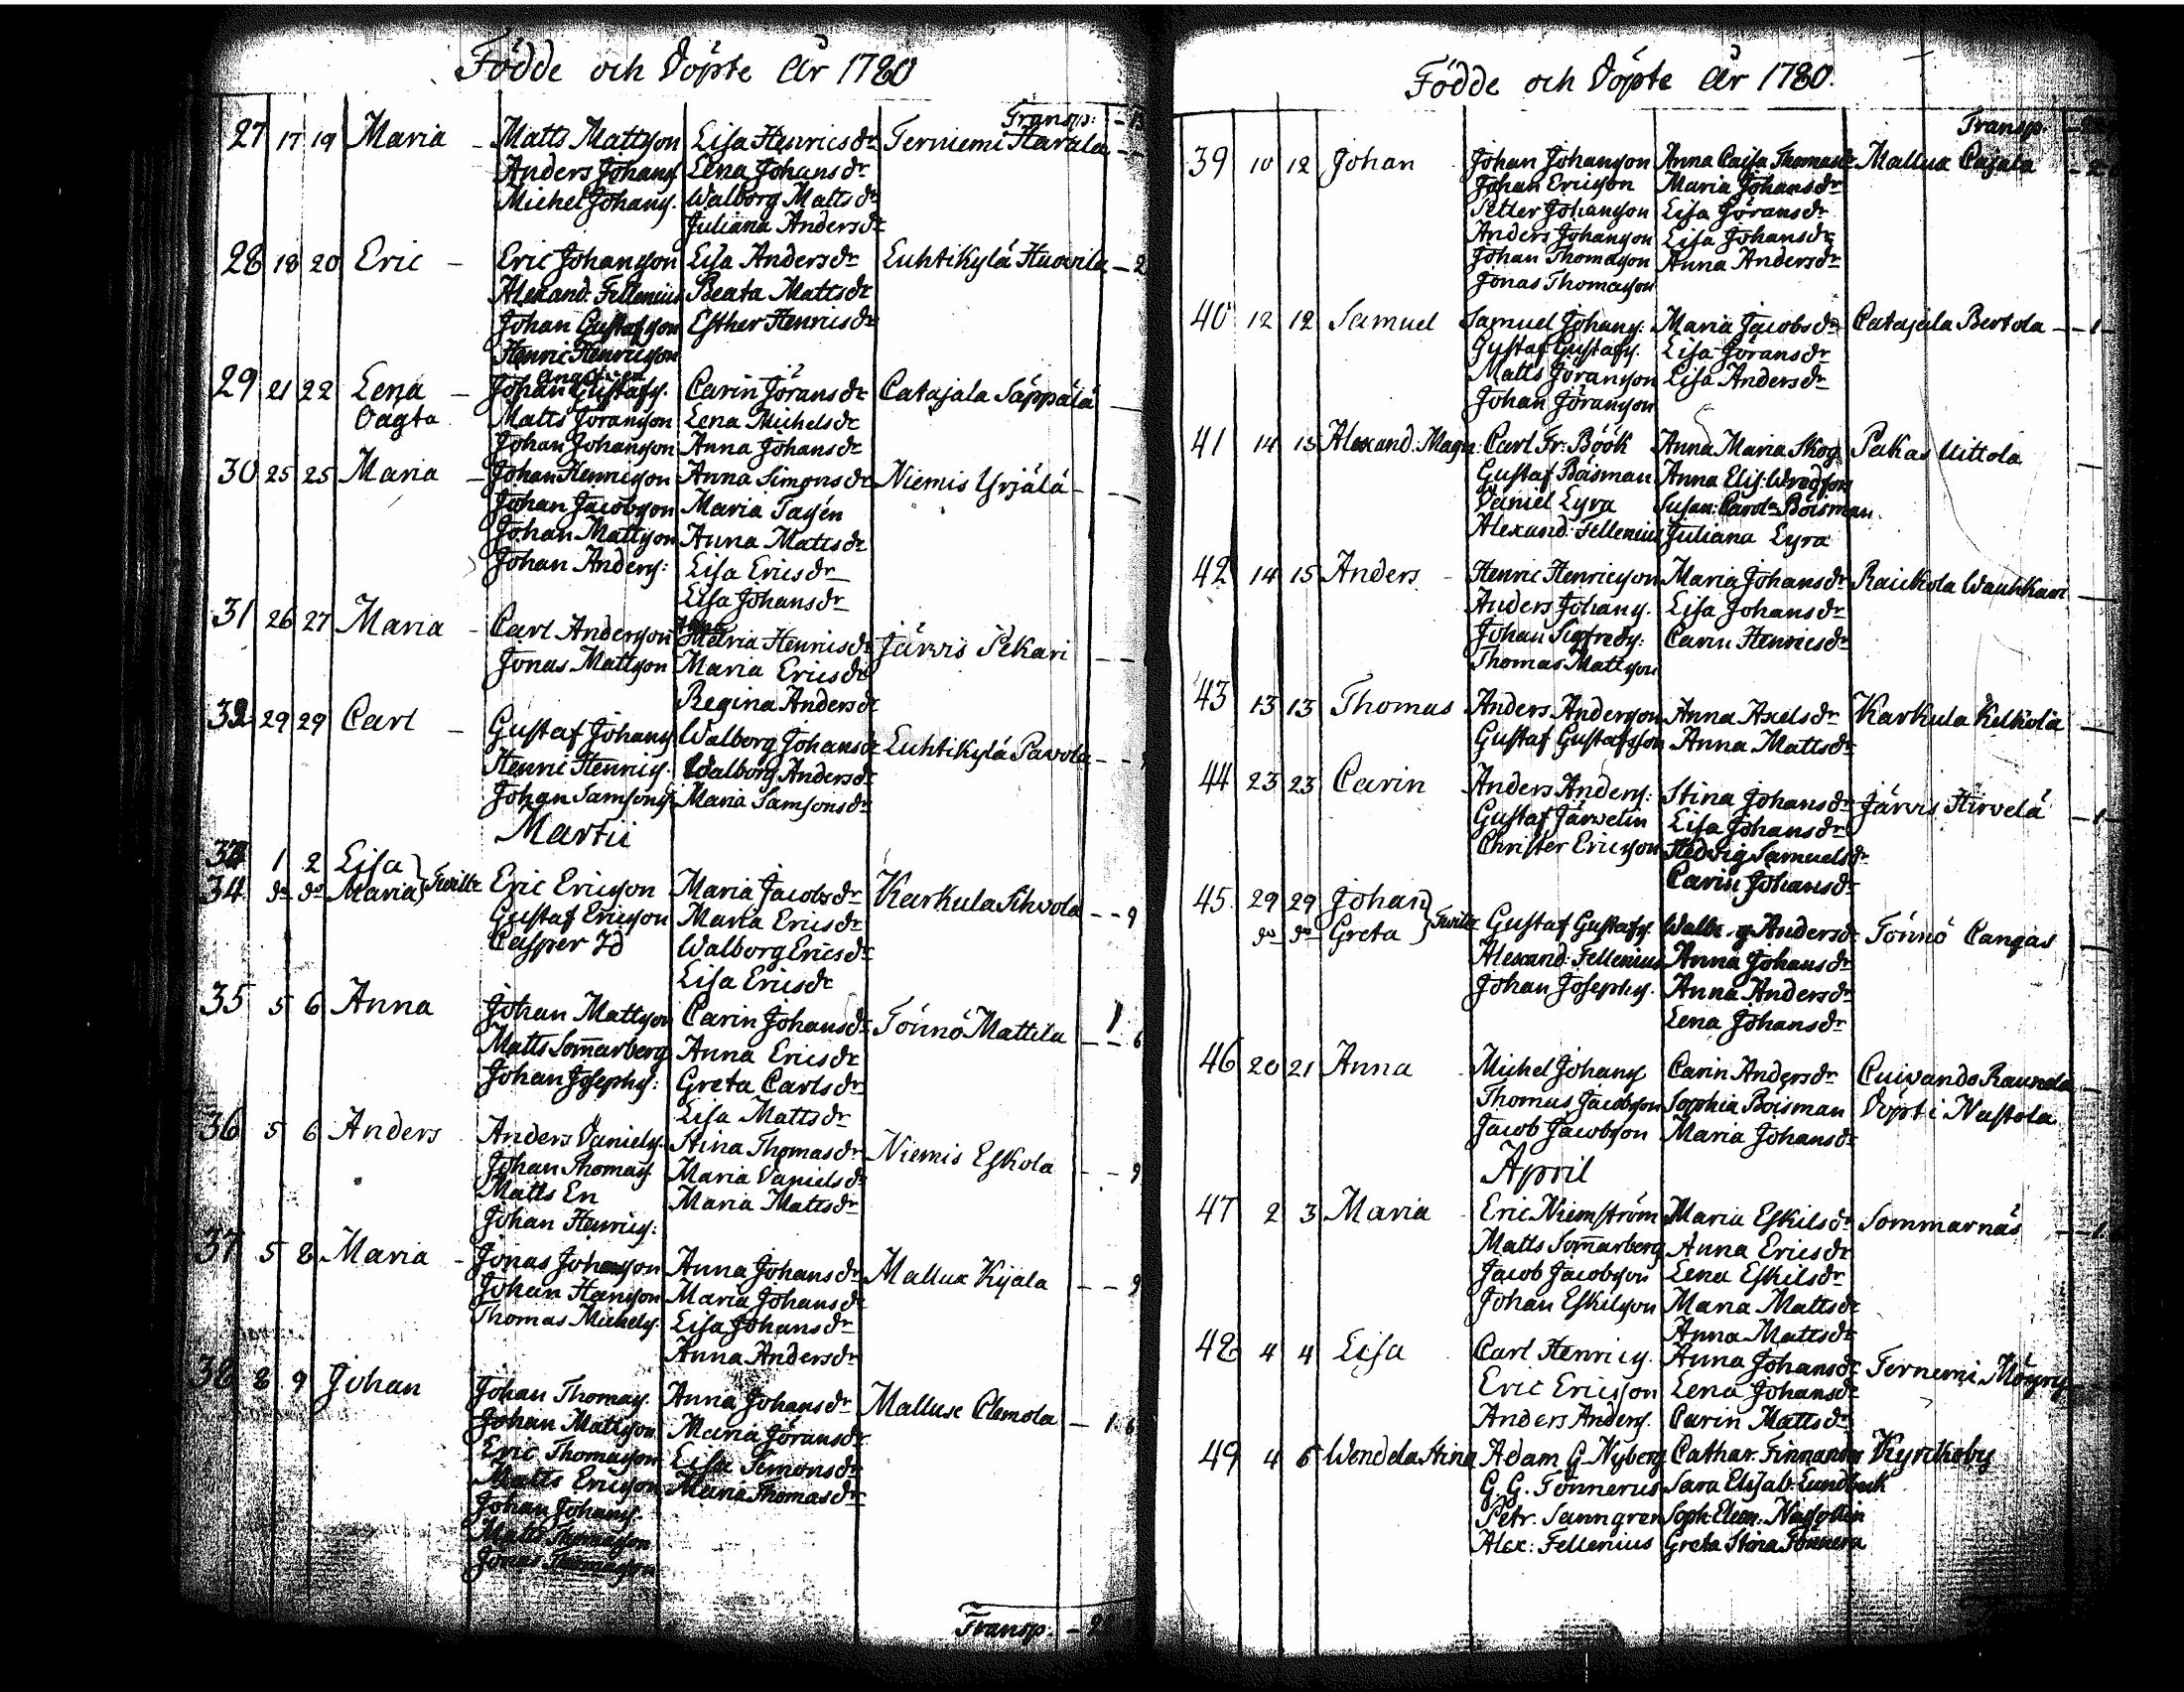 Födde och Döpte År 1780
Transp:
27 17 19 Maria - Matts Mattsson Lisa Henricsdr Terniemi Harala
Anders Johans. Lena Johansdr
Michel Johans. Walborg Mattsdr
Juliana Andersdr
28 18 20 Eric - Eric Johansson Lisa Andersdr Luhtikylä Huovila - 2
Alexand. Fellenius Beata Mattsdr
Johan Gustafsson Esther Henricsdr
Henric Henricsson
29 21 22 Lena - Johan Gustafs. Carin Jöransdr Catajala Säppälä
Oägta Matts Jöransson Lena Michelsdr
Johan Johansson Anna Johansdr
30 25 25 Maria - Johan Henricsson Anna Simonsdr Niemis Yrjälä
Johan Jacobsson Maria Tasén
Johan Mattsson Anna Mattsdr
Johan Anders: Lisa Ericsdr
Lisa Johansdr
31 26 27 Maria - Carl Andersson Maria Henricsdr Järvis Pekari
Jonas Mattsson Maria Ericsdr
Regina Andersdr
32 29 29 Carl - Gustaf Johans Walborg Johansdr Luhtikylä Pavola
Henric Henrics. Walborg Andersdr
Johan Samsons. Maria Samsonsdr
Martii
33 1 2 Lisa
34 do do Maria } Twill: Eric Ericsson Maria Jacobsdr Karkula Sihvola - - 9
Gustaf Ericsson Maria Ericsdr
Casper Id Walborg Ericsdr
Lisa Ericsdr
35 5 6 Anna Johan Mattsson Carin Johansdr Tönnö Mattila - - 6
Matts Som̄arberg Anna Ericsdr
Johan Josephs: Greta Carlsdr
Lisa Mattsdr
36 5 6 Anders Anders Daniels. Stina Thomasdr Niemis Eskola - - 9
Johan Thomas Maria Danielsdr
Matts En Maria Mattsdr
Johan Henrics:
37 5 8 Maria - Jonas Johansson Anna Johansdr Mallux Kijala - - 9
Johan Hansson Maria Johansdr
Thomas Michels. Lisa Johansdr
Anna Andersdr
38 8 9 Johan Johan Thomas. Anna Johansdr Mallux Clemola - 1. 6
Johan Mattsson Maria Jöransdr
Eric Thomasson Lisa Simonsdr
Matts Ericsson Maria Thomasdr
Johan Johans.
Matts Thomasson
Jonas Thomasson
Transp. -
Födde och Döpte År 1780.
Transp.
39 10 12 Johan Johan Johansson Anna Caisa Thomasdr Mallux Cajala - 2
Johan Ericsson Maria Johansdr
Petter Johansson Lisa Jöransdr
Anders Johansson Lisa Johansdr
Johan Thomasson Anna Andersdr
Jonas Thomasson
40 12 12 Samuel Samuel Johans: Maria Jacobsdr Catajala Bertola - 1 -
Gustaf Gustafs. Lisa Jöransdr
Matts Jöransson Lisa Andersdr
Johan Jöransson
41 14 15 Alexand. Magn: Carl Fr: Böök Anna Maria Skog Pakas Uittola
Gustaf Böisman Anna Elis: Wredfors
Daniel Lyra Susan: Carola Böisman
Alexand: Fellenius Juliana Lyra
42 14 15 Anders - Henric Henricsson Maria Johansdr Raickola Wauhkari
Anders Johans. Lisa Johansdr
Johan Sigfreds: Carin Henricsdr
Thomas Mattsson
43 13 13 Thomas Anders Andersson Anna Axelsdr Karkula Kelkola
Gustaf Gustafsson Anna Mattsdr
44 23 23 Carin Anders Anders: Stina Johansdr Järvis Hirvelä - 1 -
Gustaf Järvelin Lisa Johansdr
Christer Ericsson Hedvig Samuelsdr
Carin Johansdr
45 29 29 Johan
do do Greta } Twill: Gustaf Gustafs. Walborg Andersdr Tönnö Cangas
Alexand: Fellenius Anna Johansdr
Johan Josephs. Anna Andersdr
Lena Johansdr
46 20 21 Anna Michel Johans Carin Andersdr Cuivando Raunala
Thomas Jacobsson Sophia Böisman Döpt i Nastola
Jacob Jacobsson Maria Johansdr
April
47 2 3 Maria Eric Niemström Maria Eskilsdr Sommarnäs - 1
Matts Som̄arberg Anna Ericsdr
Jacob Jacobsson Lena Eskilsdr
Johan Eskilsson Maria Mattsdr
Anna Mattsdr
48 4 4 Lisa Carl Henrics. Anna Johansdr Ternemi
Eric Ericsson Lena Johansdr
Anders Anders. Carin Mattsdr
49 4 6 Wendela Stina Adam G Nyberg Cathar. Finnander Kyrckoby
G. G. Tönnerus Sara Elisab. Lundbeck
Petr. Sanngren Soph: Eleon:
Alex: Fellenius Greta Stina Tönnera